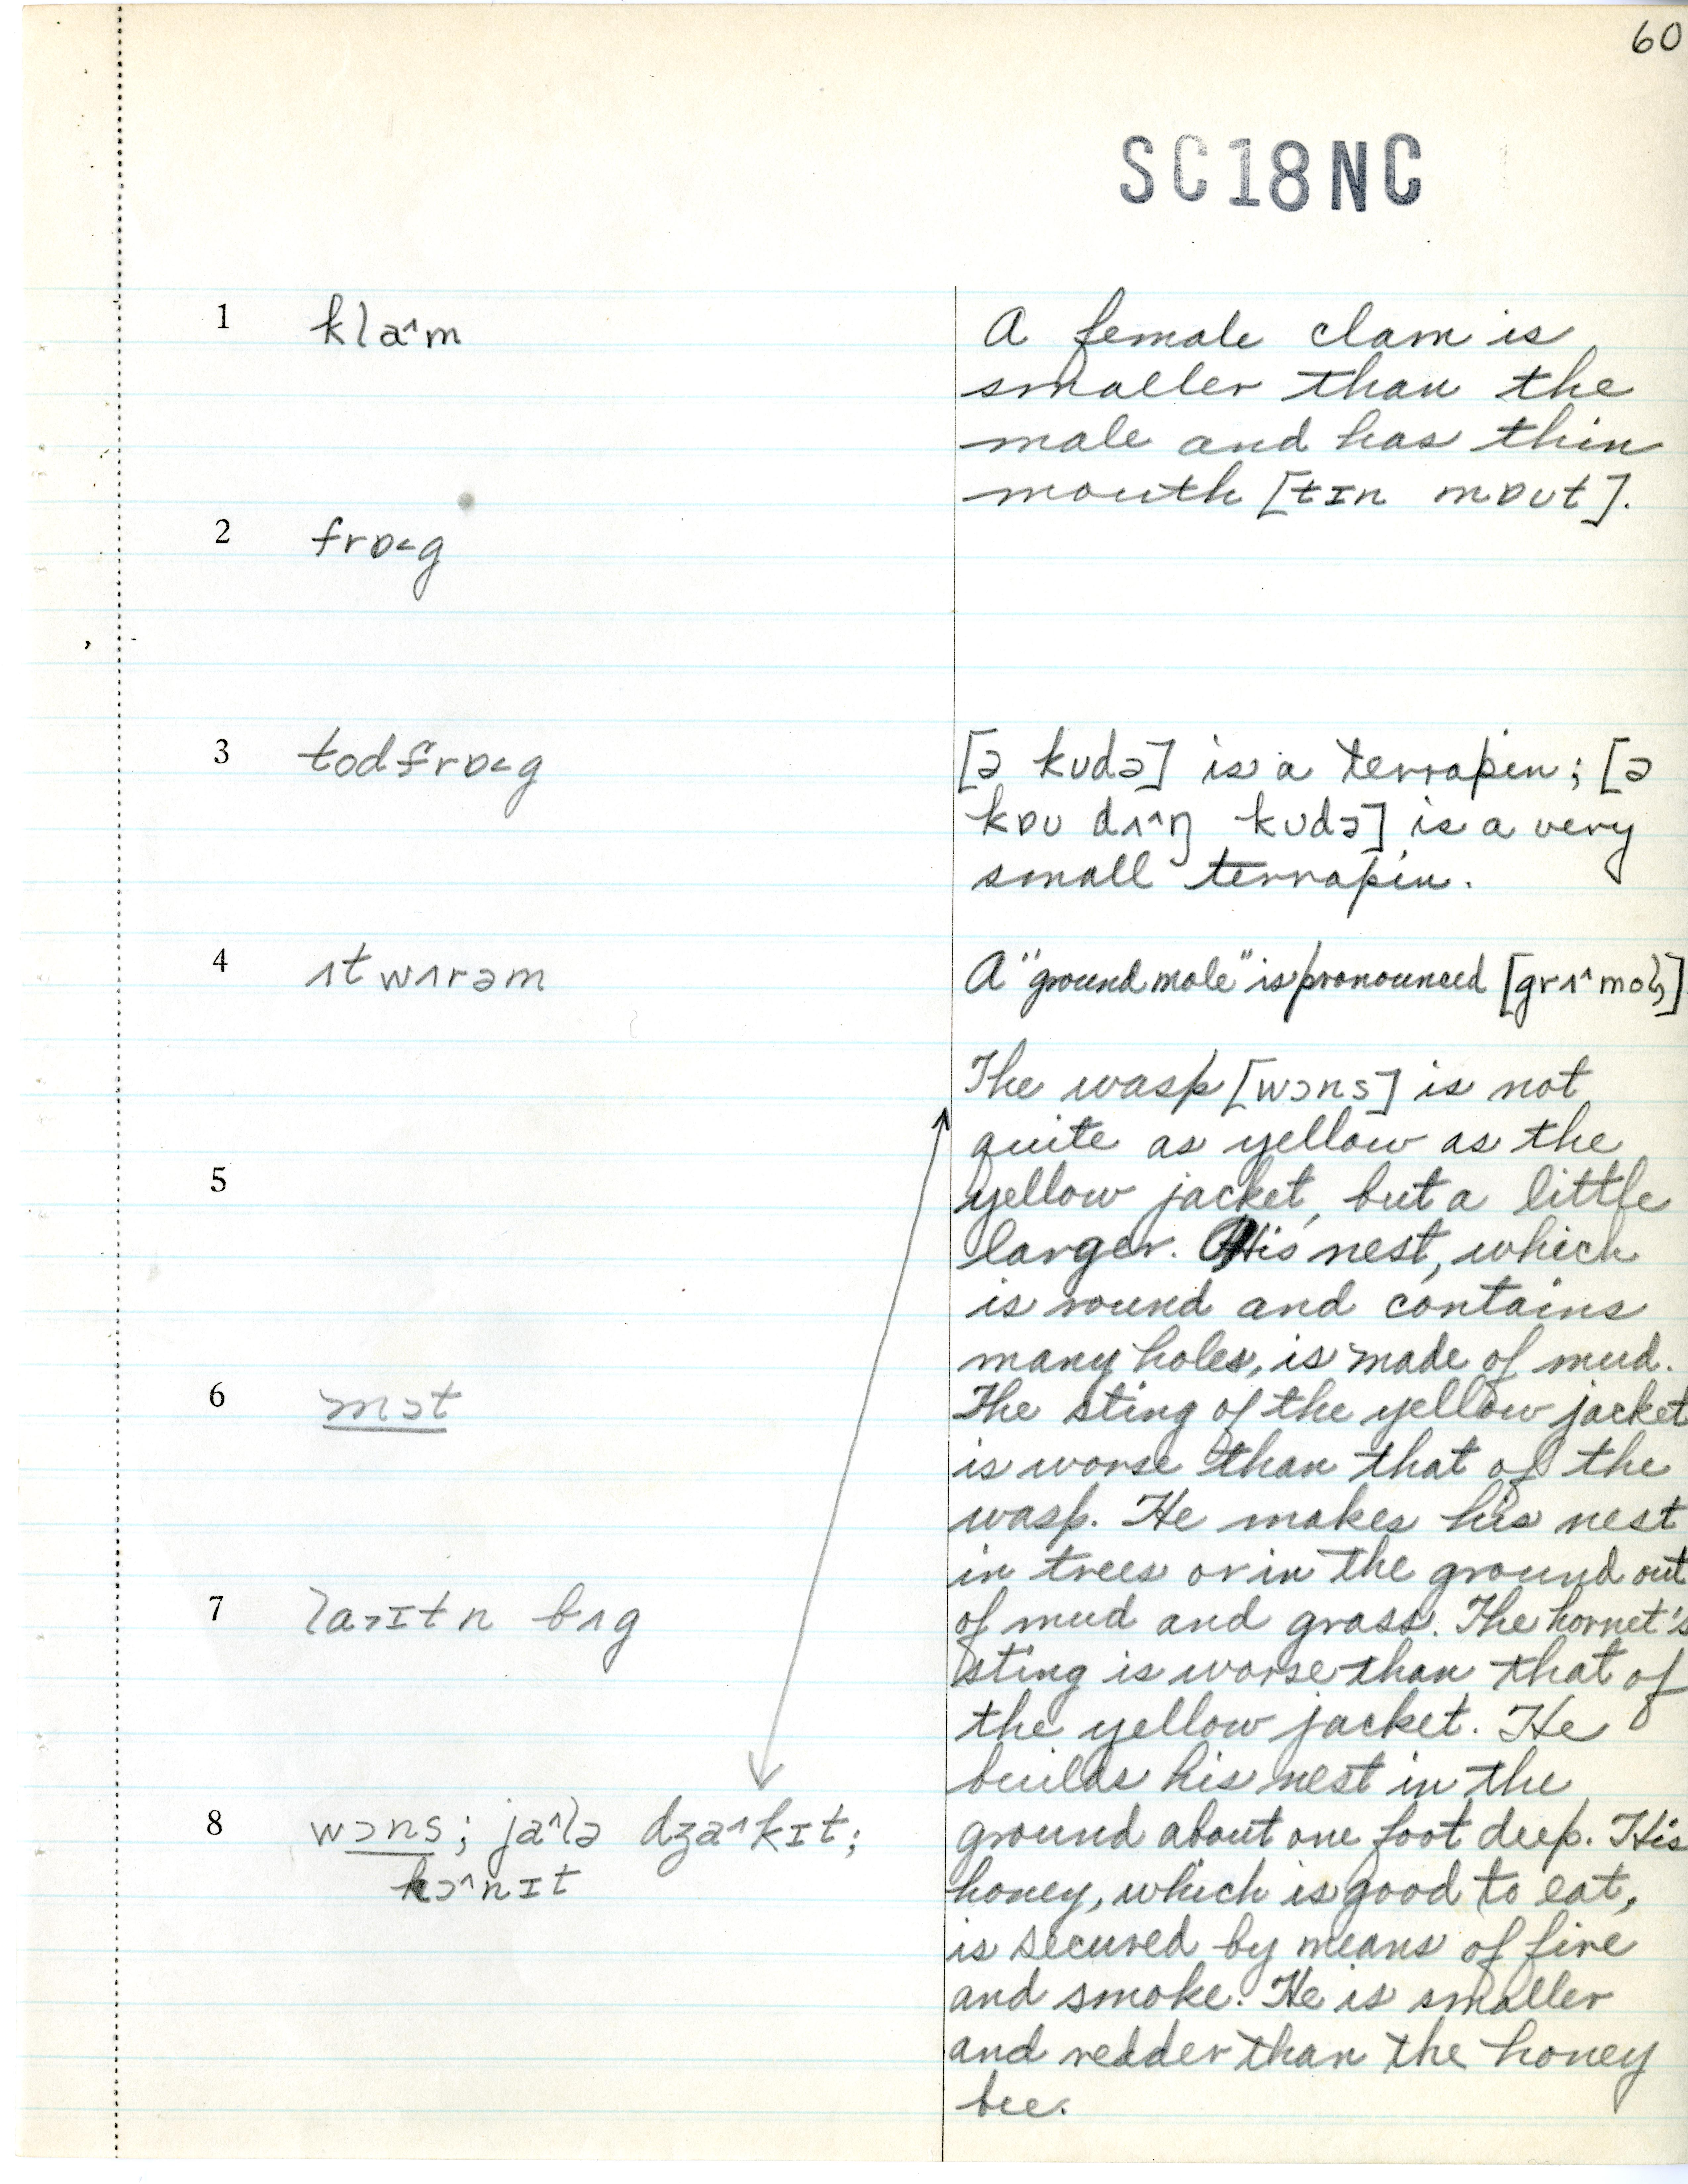 60
SC18NC
1 klaˆm
A female clam is
smaller than the
male and has thin
mouth [tɪn mɒʊt].
2 frɒ˂g
3 todfrɒ˂g
[ə kʊdə] is a terrapin; [ə
kɒʊ dʌˆŋ kʊdə] is a very
small terrapin.
4 ʌtwʌrəm
A "ground mole" is pronounced
The wasp [wɔns] is not
quite as yellow as the
5
yellow jacket, but a little
larger. His nest, which
is round and contains
many holes, is made of mud.
6 mɔt
The sting of the yellow jacket
is worse than that of the
wasp. He makes his nest
in trees or in the ground out
7 bʌg
of mud and grass. The hornet's
sting is worse than that of
the yellow jacket. He
builds his nest in the
8 wɔns; jaˆlə dʒaˆkɪt;
hɔˆnɪt
ground about one foot deep. His
honey, which is good to eat,
is secured by means of fire
and smoke. He is smaller
and redder than the honey
bee.